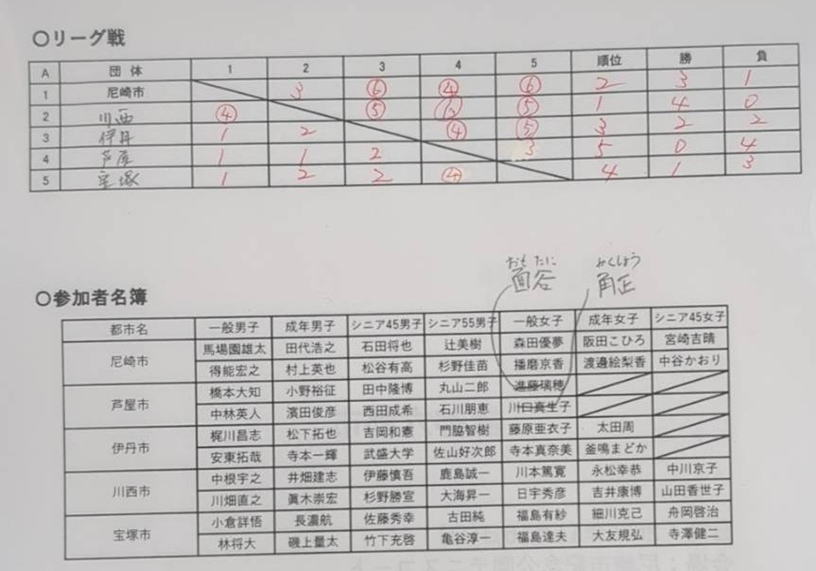 〇リーグ戦
A 団体 1 2 3 4 5 順位 勝 負
1 尼崎市 3 ⑥ ④ ⑥ 2 3 1
2 川西 ④ ⑤ ⑤ 1 4 0
3 伊丹 1 2 ④ ⑤ 3 2 2
4 芦屋 1 1 2 3 5 0 4
5 宝塚 1 2 2 ④ 4 1 3
おもたに かくしょう
面谷 角正
〇参加者名簿
都市名 一般男子 成年男子 シニア45男子 シニア55男子 一般女子 成年女子 シニア45女子
尼崎市 馬場園雄太 田代浩之 石田将也 辻美樹 森田優夢 阪田こひろ 宮崎吉晴
得能宏之 村上英也 松谷有高 杉野佳苗 播磨京香 渡邉絵梨香 中谷かおり
芦屋市 橋本大知 小野裕征 田中隆博 丸山二郎 進藤瑞穂
中林英人 濱田俊彦 西田成希 石川朋恵 川口真生子
伊丹市 梶川昌志 松下拓也 吉岡和憲 門脇智樹 藤原亜衣子 太田周
安東拓哉 寺本一輝 武盛大学 佐山好次郎 寺本真奈美 釜鳴まどか
川西市 中根宇之 井畑建志 伊藤慎吾 鹿島誠一 川本篤寛 永松幸恭 中川京子
川畑直之 眞木崇宏 杉野勝宣 大海昇一 日宇秀彦 吉井康博 山田香世子
宝塚市 小倉詳悟 長濃航 佐藤秀幸 古田純 福島有紗 細川克己 舟岡啓治
林将大 磯上量太 竹下充啓 亀谷淳一 福島達夫 大友規弘 寺澤健二